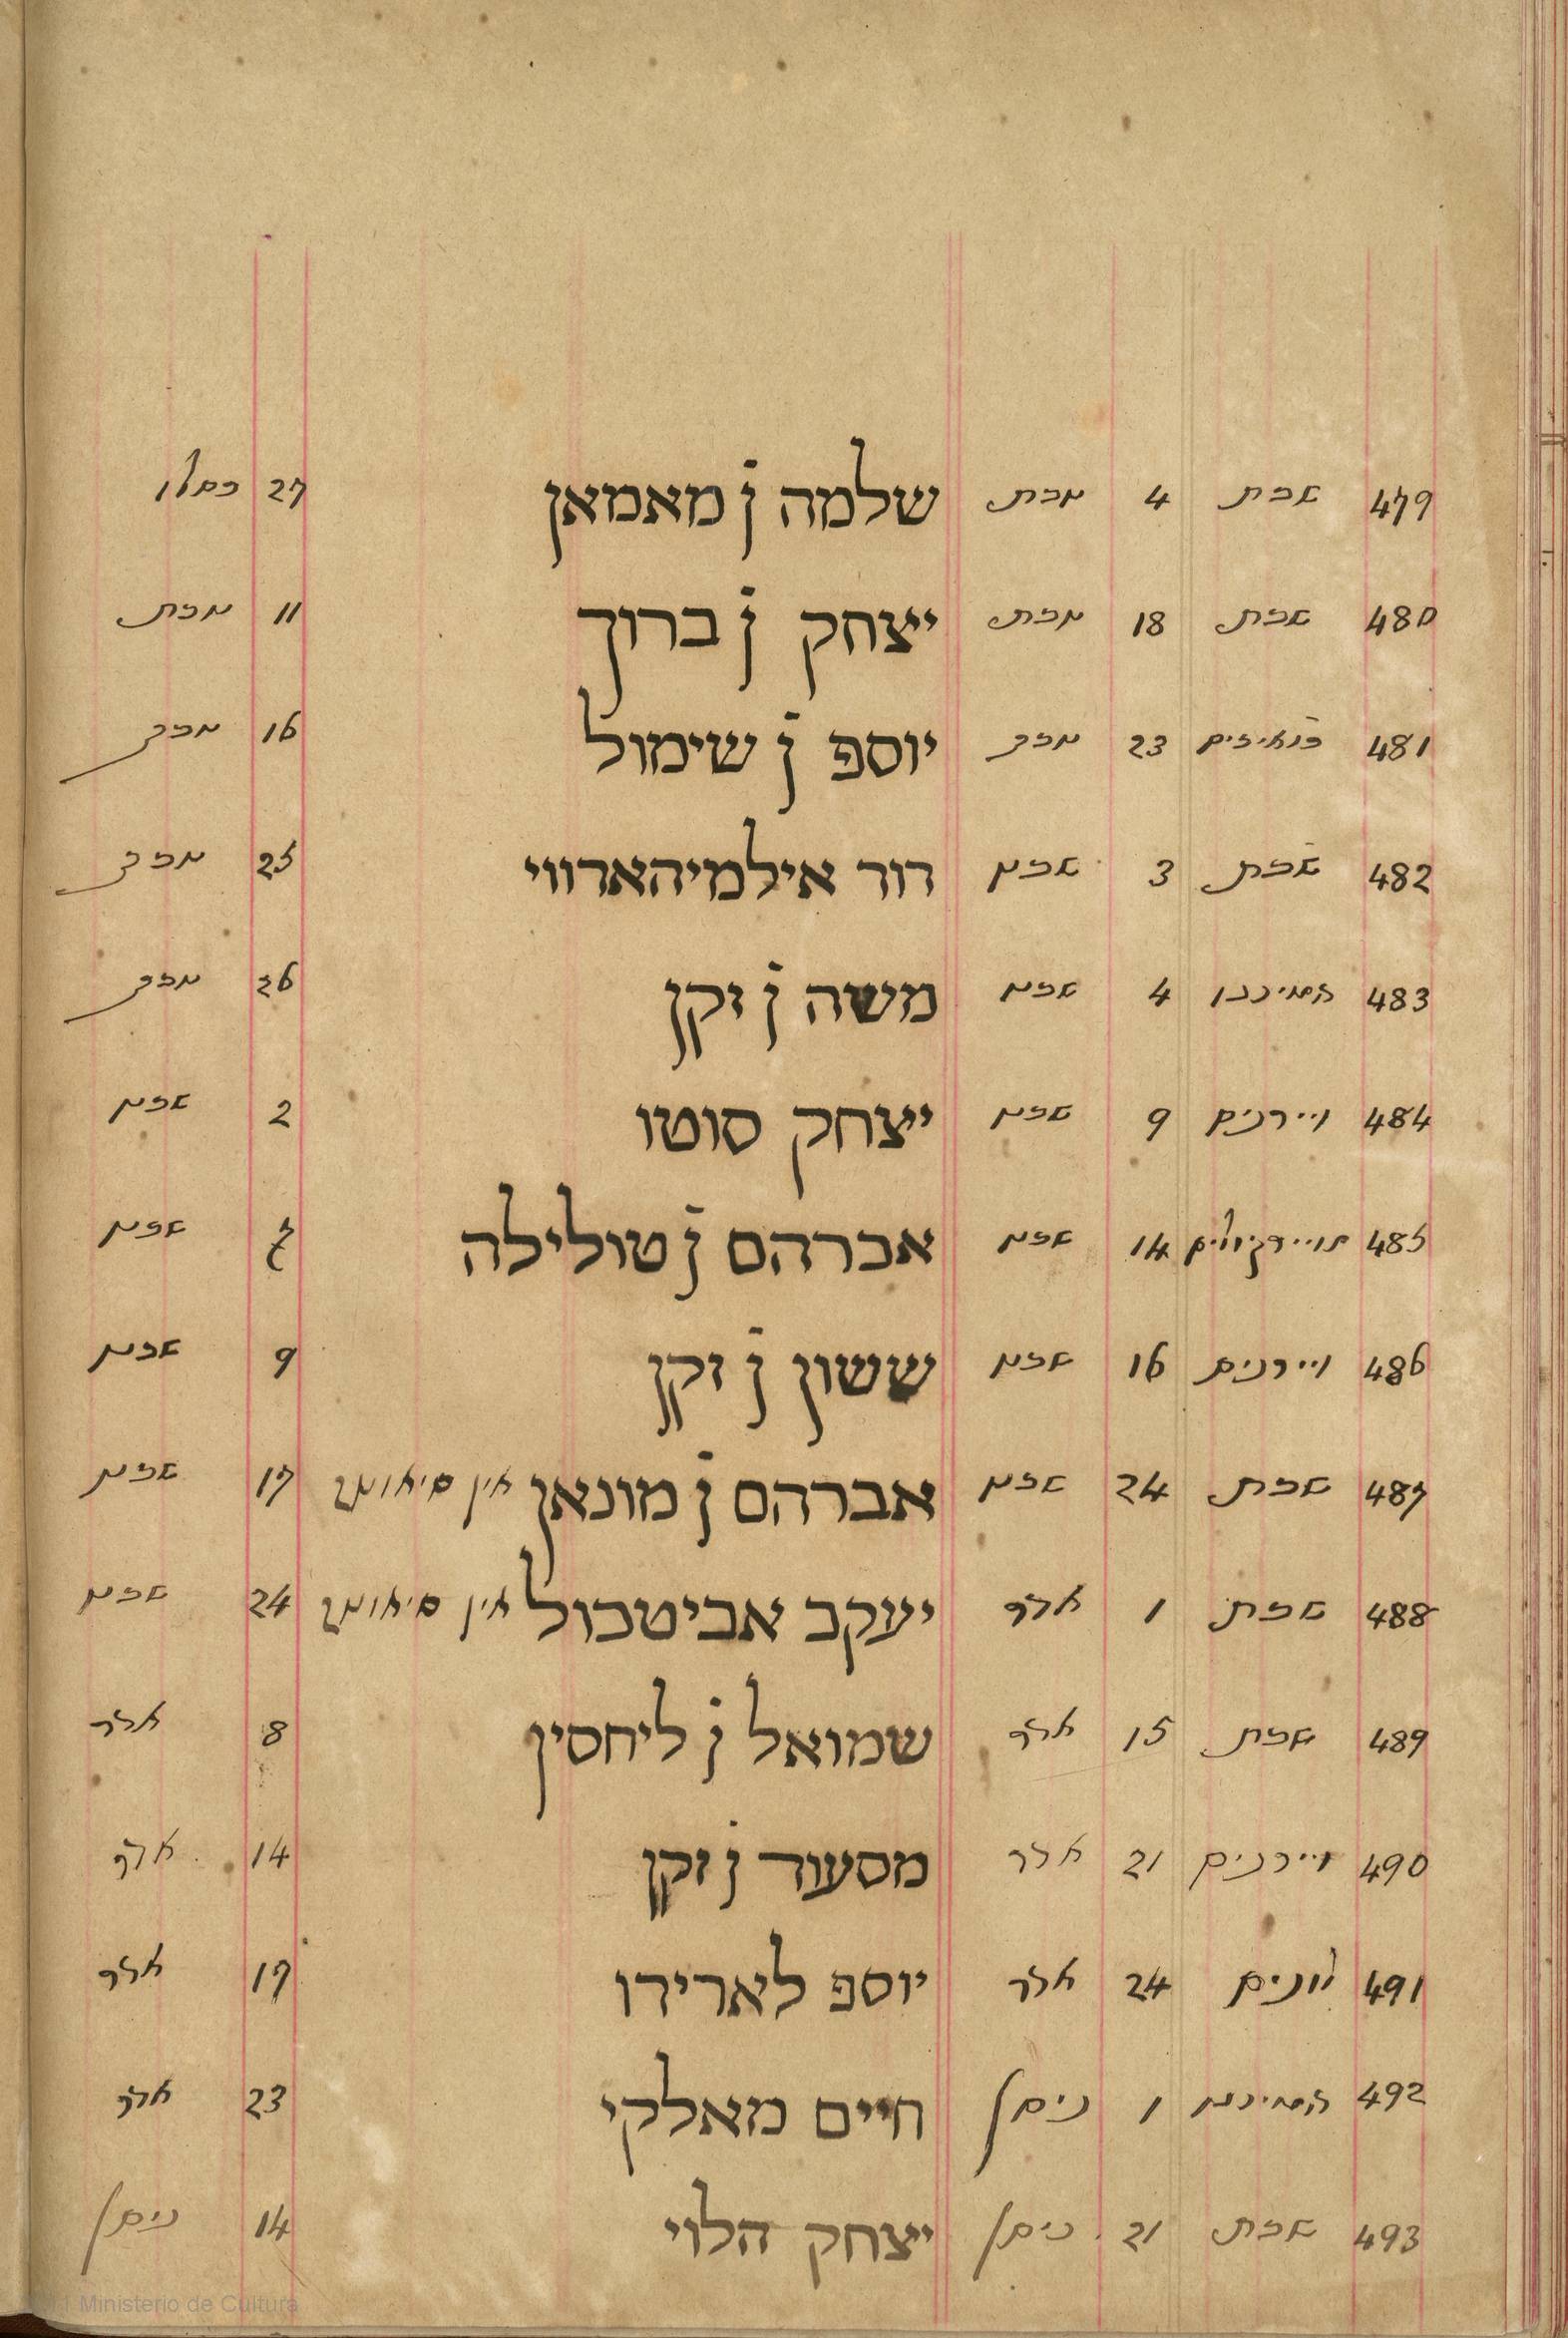 479 שבת 4 טבת שלמה ן׳ מאמאן 27 כסלו
480 שבת 18 טבת יצחק ן׳ ברוך 11 טבת
481 23 טבת יוסף ן׳ שימול 16 טבת
482 שבת 3 שבט דוד אילמיהארווי 25 טבת
483 דומינגו 4 שבט משה ן׳ זקן 26 טבת
484 ויירניס 9 שבט יצחק סוטו 2 שבט
485 מיירקוליס 14 שבט אברהם ן׳ טולילה 7 שבט
486 ויירניס 16 שבט ששון ן׳ זקן 9 שבט
487 שבת 24 שבט אברהם ן׳ מונאן אין 17 שבט
488 שבת 1 אדר יעקב אביטבול אין 24 שבט
489 שבת 15 אדר שמואל ן׳ ליחסין 8 אדר
490 ויירניס 21 אדר מסעוד ן׳ זקן 14 אדר
491 לוניס 24 אדר יוסף לארידו 17 אדר
492 דומינגו 1 ניסן חיים מאלקי 23 אדר
493 שבת 21 ניסן יצחק הלוי 14 ניסן
Ministerio de Cultura